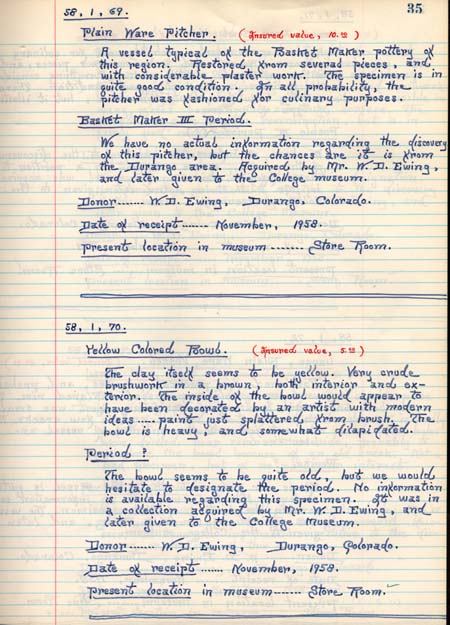 35
58, 1, 69.
Plain Ware Pitcher. (Insured value, 10.00)
A vessel typical of the Basket Maker pottery of
this region. Restored from several pieces, and
with considerable plaster work. The specimen is in
quite good condition. In all probability, the
pitcher was fashioned for culinary purposes.
Basket Maker III Period.
We have no actual information regarding the discovery
of this pitcher, but the chances are it is from
the Durango area. Acquired by Mr. W. D. Ewing,
and later given to the College museum.
Donor------- W. D. Ewing, Durango, Colorado.
Date of receipt ------- November, 1958.
Present location in museum ------- Store Room.
58, 1, 70.
Yellow Colored Bowl. (Insured value, 5.00)
The clay itself seems to be yellow. Very crude
brushwork in a brown, both interior and ex-
terior. The inside of the bowl would appear to
have been decorated by an artist with modern
ideas .... paint just splattered from brush. The
bowl is heavy, and somewhat dilapidated.
Period ?
The bowl seems to be quite old, but we would
hesitate to designate the period. No information
is available regarding this specimen. It was in
a collection acquired by Mr. W. D. Ewing, and
later given to the College Museum.
Donor ------- W. D. Ewing, Durango, Colorado.
Date of receipt ------- November, 1958.
Present location in museum ------- Store Room.